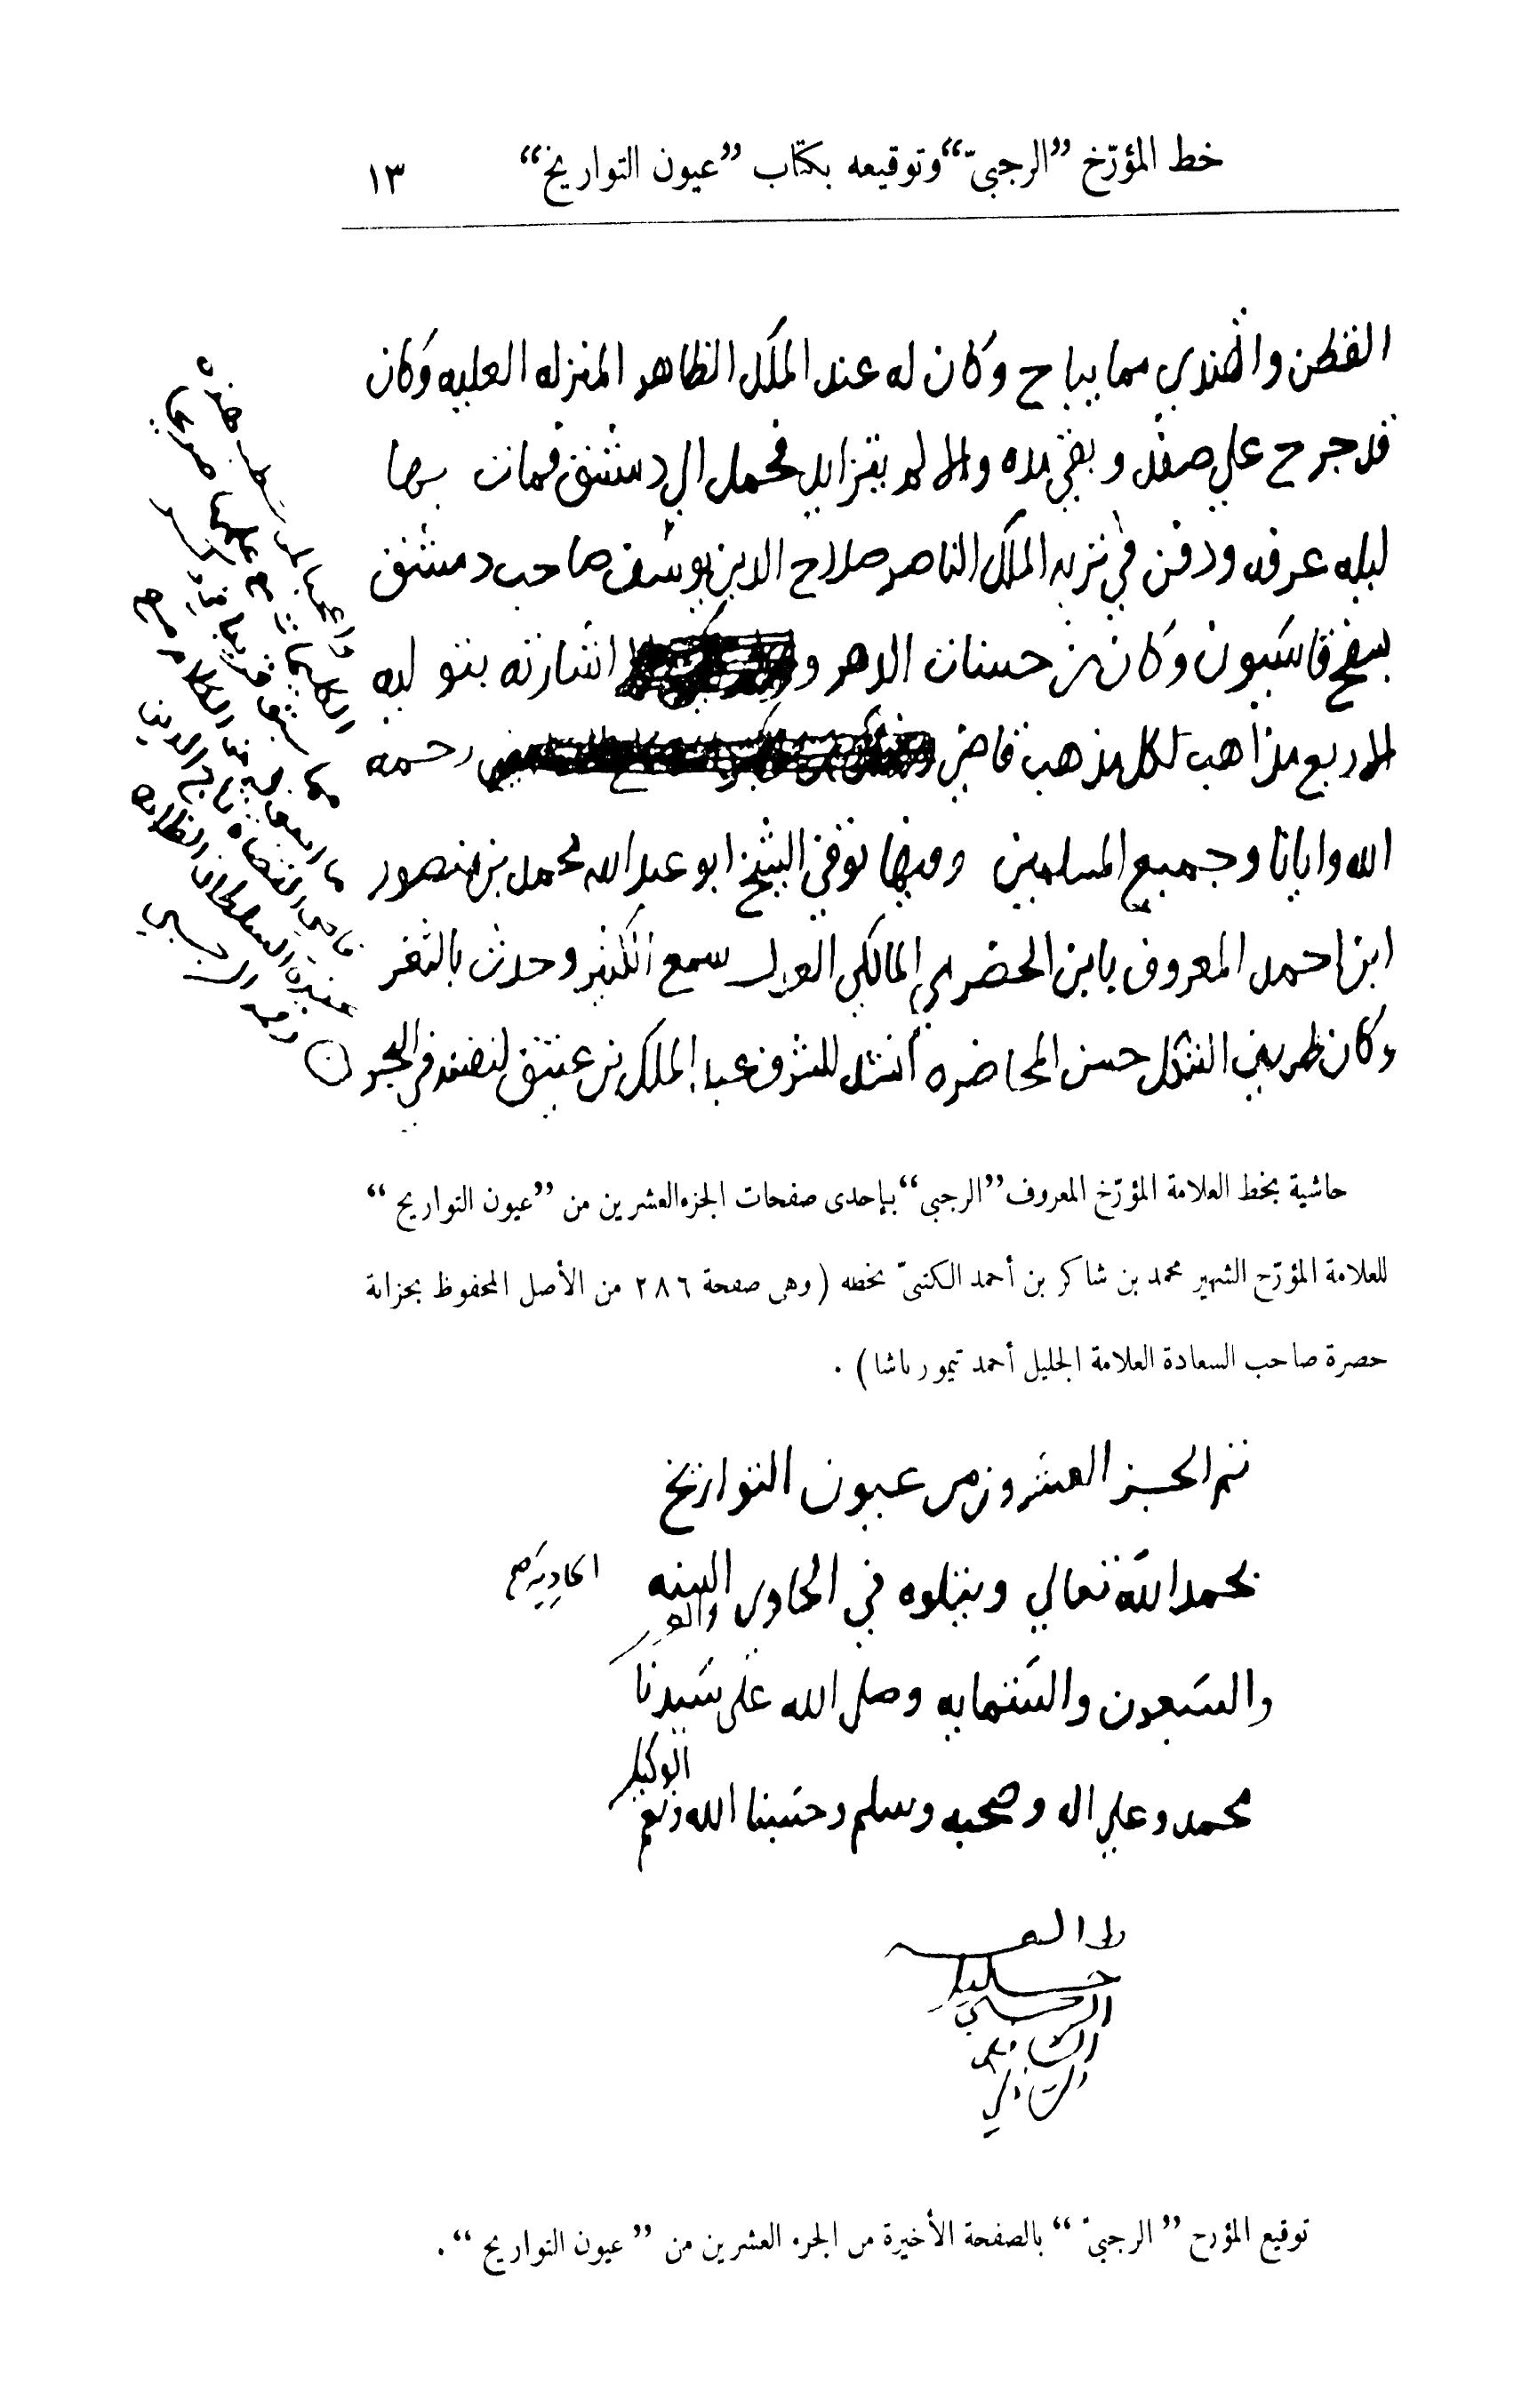 خط المؤرّخ ”الرجبىّ“ وتوقيعه بكتاب ”عيون التواريخ“ ١٣
القطن والهندي مما يباح وكان له عند الملك الظاهر المنزله العليه وكان
قد جرح علي صفد وبقي مده والالم يتزايد فحمل الي دمشق فمات بها
ليله عرفه ودفن في تربه الملك الناصر صلاح الدين يوسف صاحب دمشق
بسفح قاسيون وكان من حسنات الدهر و اشارته بتوليه
الاربع مذاهب لكل مذهب قاضي رحمه
الله وايانا وجميع المسلمين وفيها توفي الشيخ ابو عبد الله محمد بن منصور
ابن احمد المعروف بابن الحضرمي المالكي العدل سمع الكثير وحدث بالثغر
وكان ظريف الشكل حسن المحاضره انشد للشرف عبد الملك بن عتيق لنفسه في البحر
قاضي القضاة تاج الدين
عند السلطان الظاهر
الرجبي
حاشية بخط العلامة المؤرّخ المعروف ”الرجبي“ بإحدى صفحات الجزء العشرين من ”عيون التواريخ“
للعلامة المؤرّخ الشهير محمد بن شاكر بن أحمد الكتبىّ بخطه (وهى صفحة ٢٨٦ من الأصل المحفوظ بخزانة
حضرة صاحب السعادة العلامة الجليل أحمد تيمور باشا) .
تم الجز العشرون من عيون التواريخ
بحمد الله تعالي ويتلوه في الحادي السنه
الحاديه صح
والسبعون والستمايه وصلى الله على سيدنا
محمد وعلي اله وصحبه وسلم وحسبنا الله ونعم
الوكيل
خليل
الرجبي
الشافعي
الشاذلي
توقيع المؤرخ ”الرجبىّ“ بالصفحة الأخيرة من الجزء العشرين من ”عيون التواريخ“ .